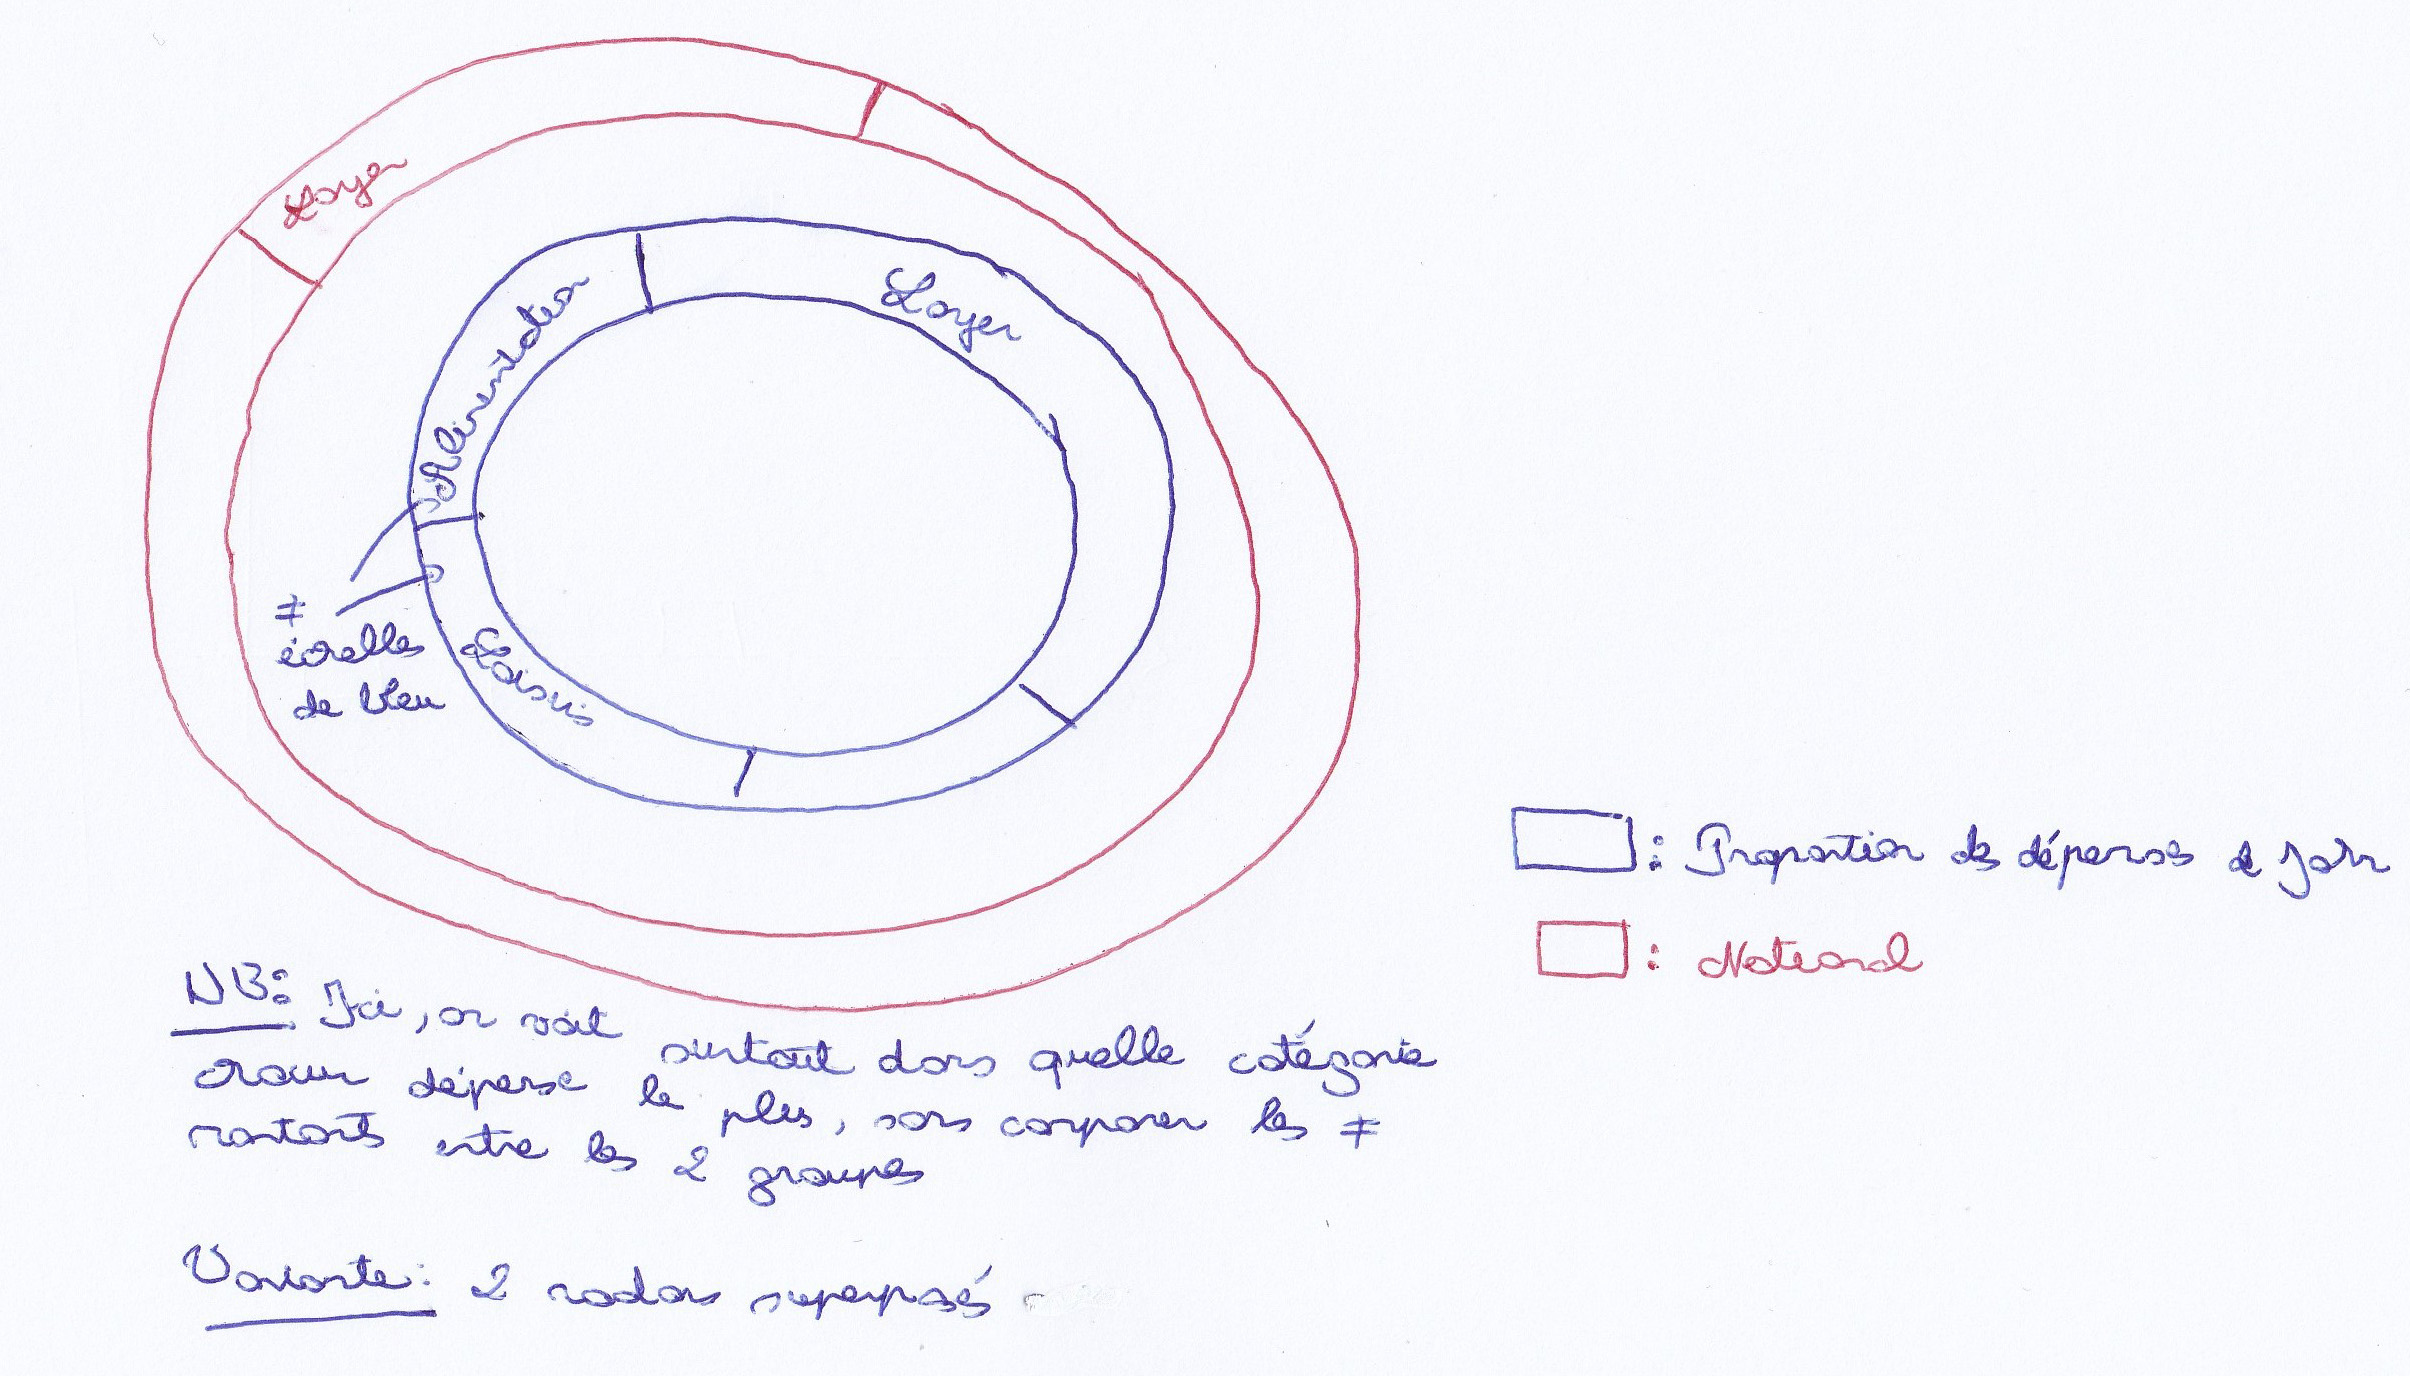 Loyer
Loyer
Alimentation
Loisirs
≠
échelles
de bleu
: Proportion des dépenses de John
: National
NB: Ici, on voit surtout dans quelle catégorie
chacun dépense le plus, sans comparer les ≠
montants entre les 2 groupes
Variante: 2 radars superposés